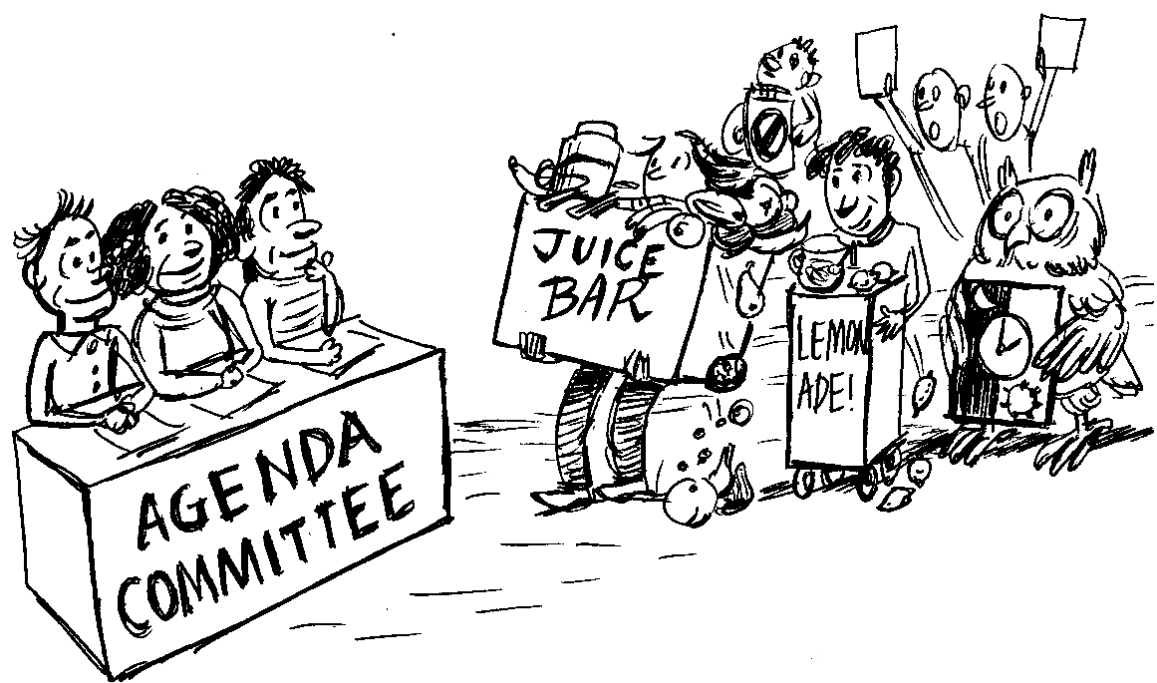 AGENDA
COMMITTEE
JUICE
BAR
LEMON
ADE!